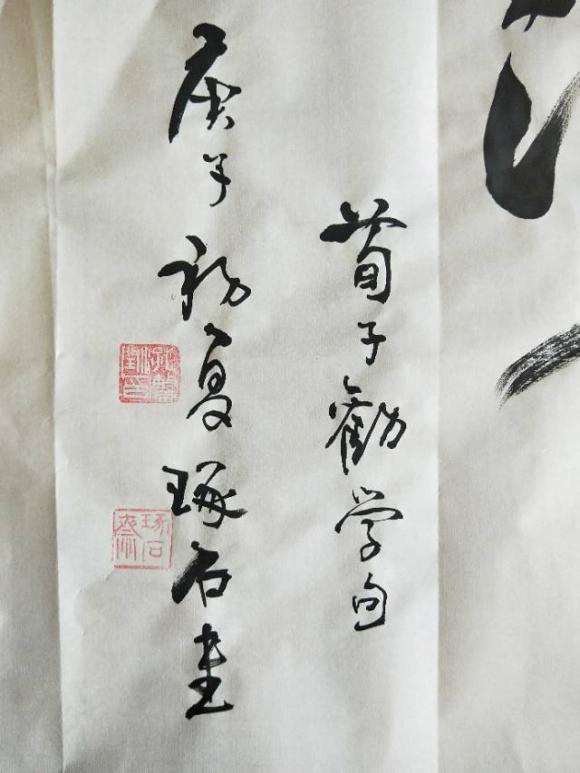 荀子勸学句
庚子初夏琢石書
琢石